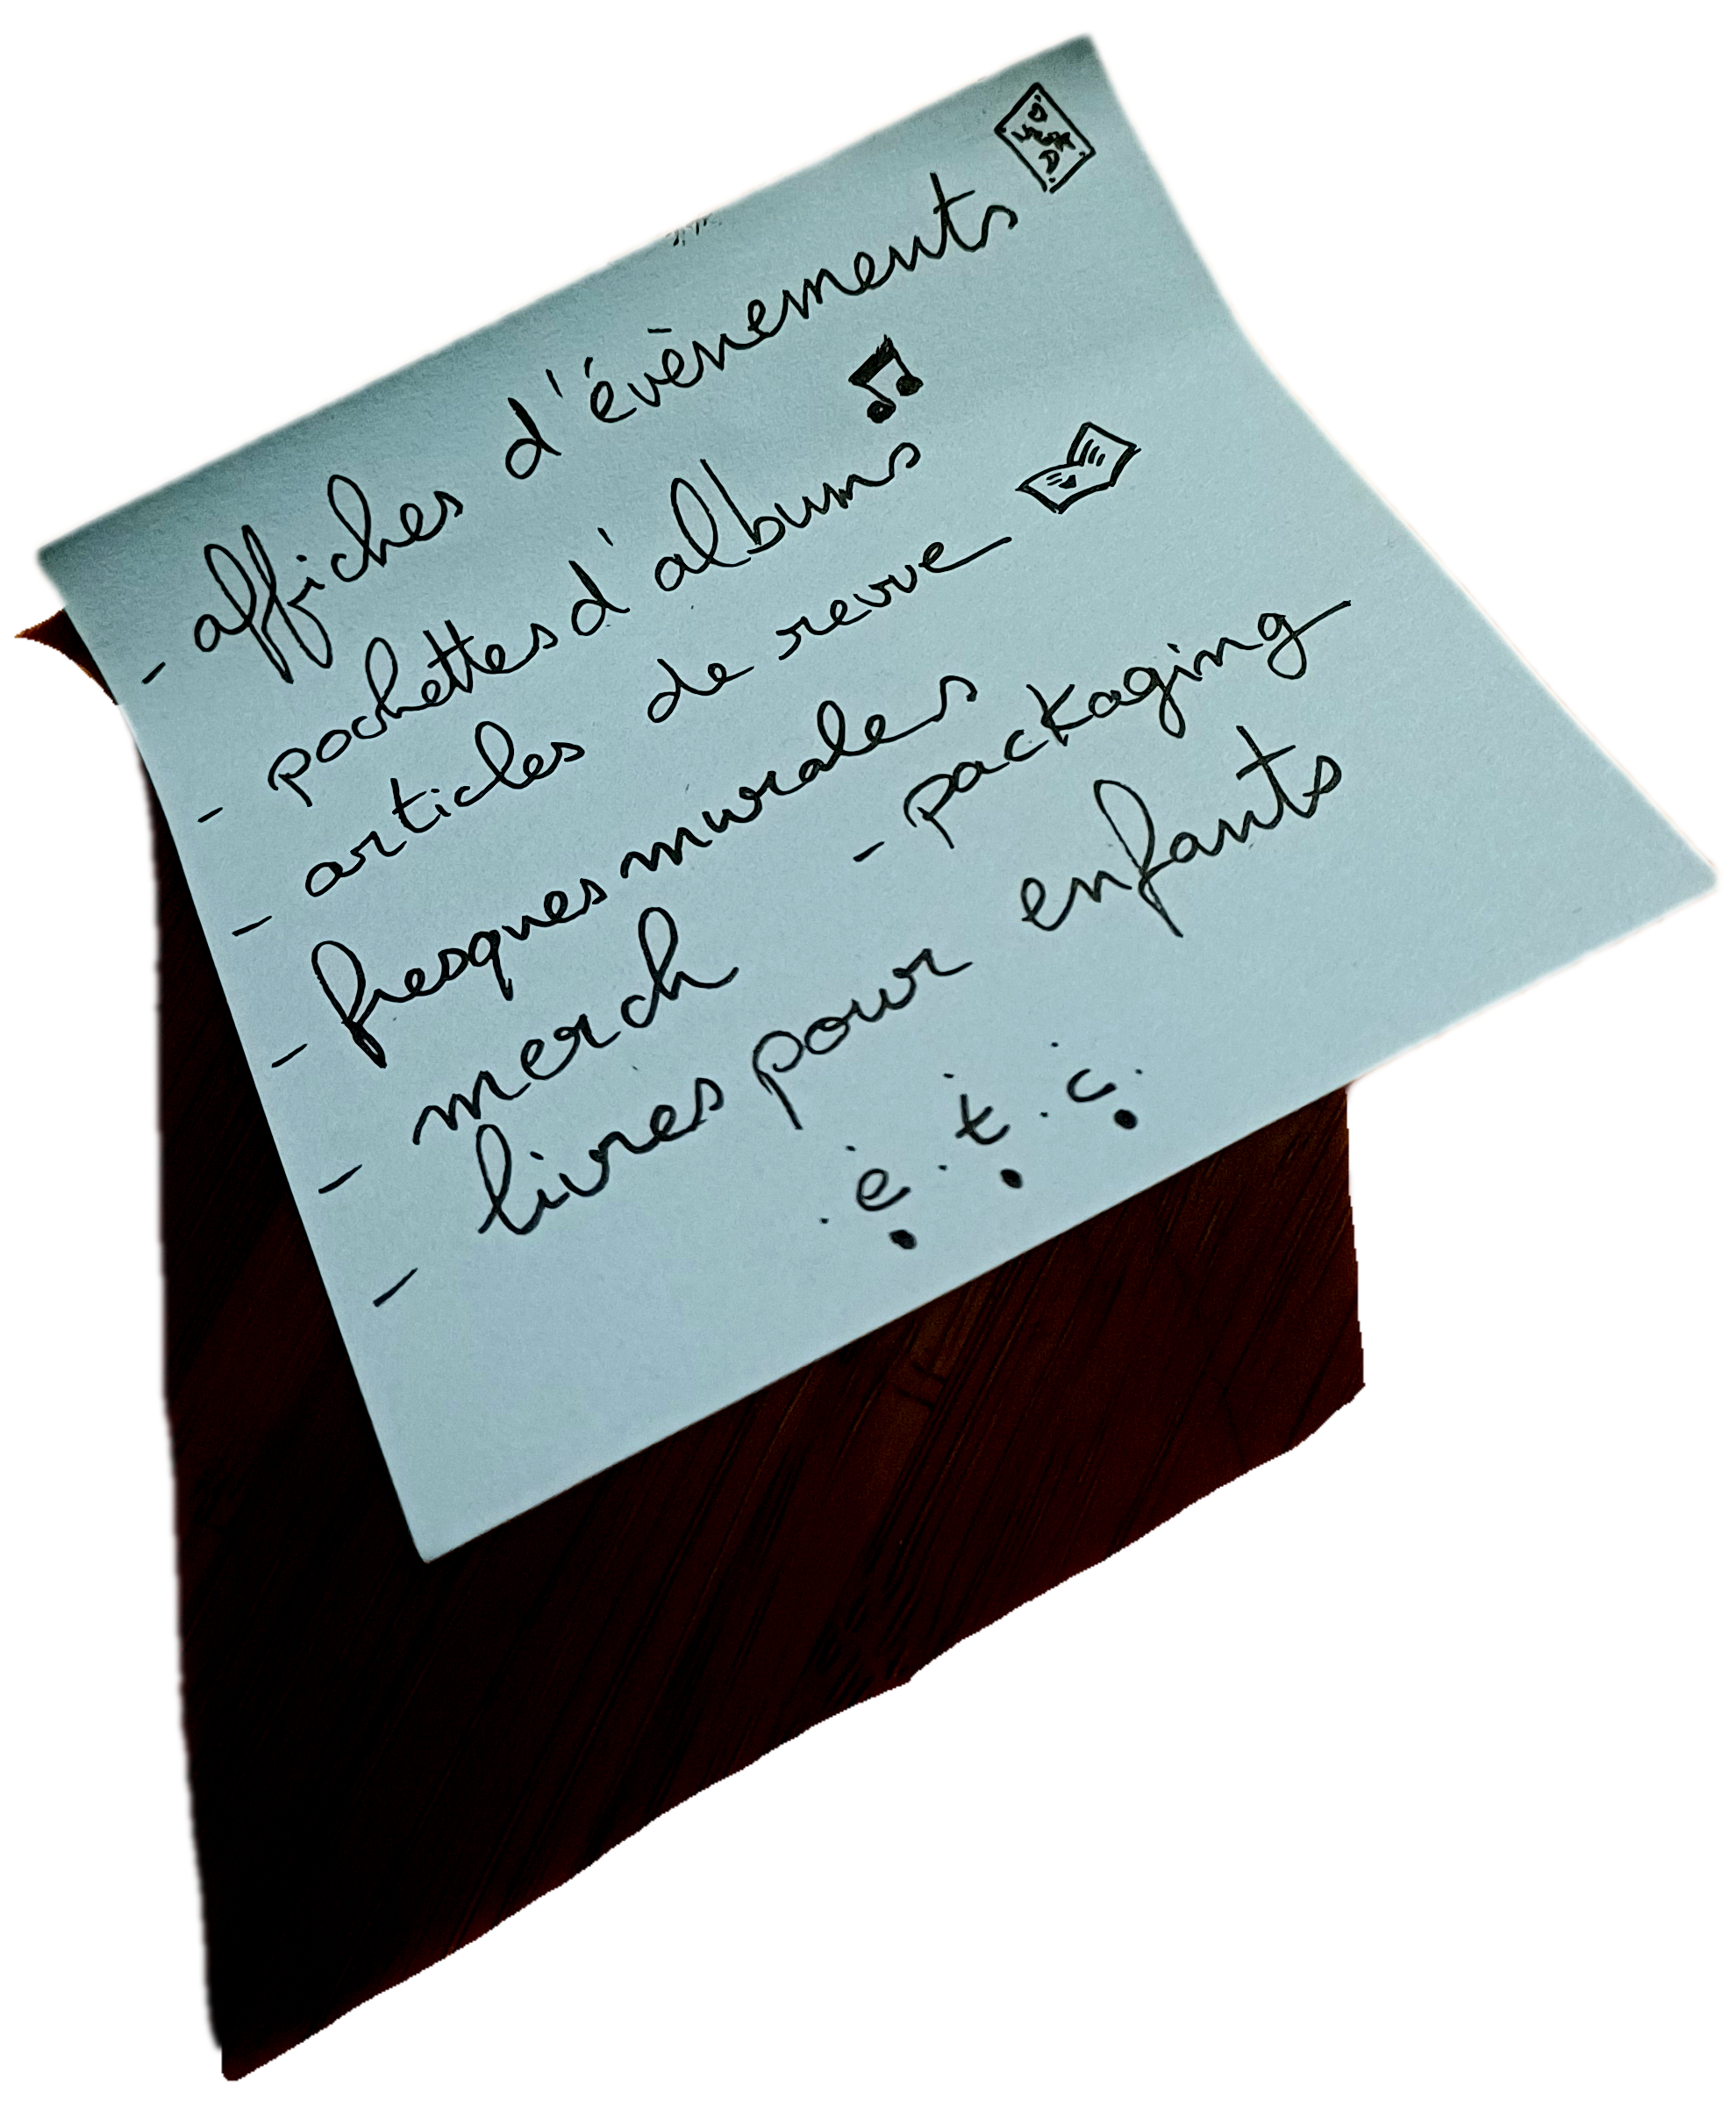 - affiches d'évènements
- pochettes d'albums
- articles de revue
- fresques murales
- merch - packaging
- livres pour enfants
. e . t . c .